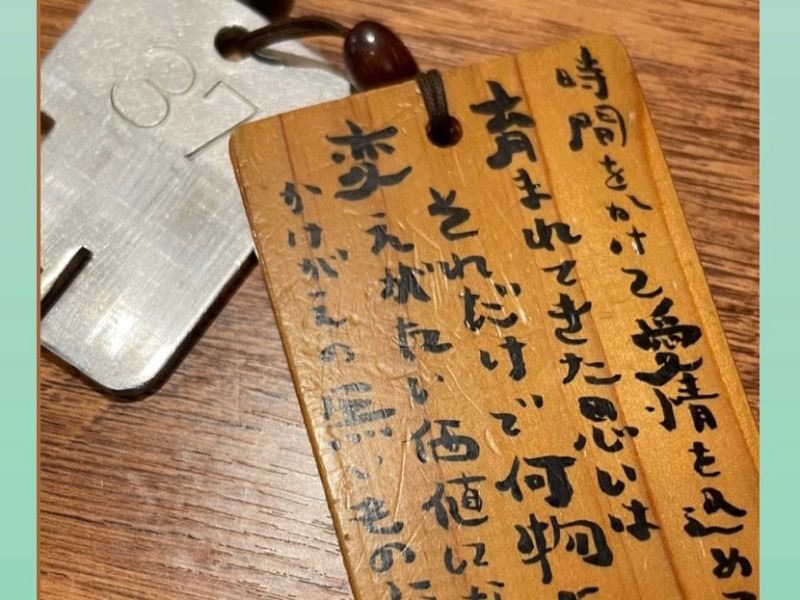 87
時間をかけて愛情を込めて
育まれてきた思いは
それだけで何物
変えがたい価値にな
かけがえの無いもの